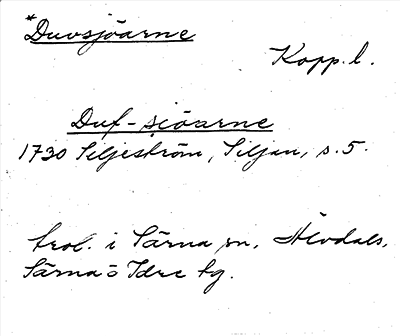 *Duvsjöarne
Kopp.l.
Duf-siöarne
1730 Siljeström, Siljan, s. 5.
trol. i Särna sn, Älvdals,
Särna o Idre tg.